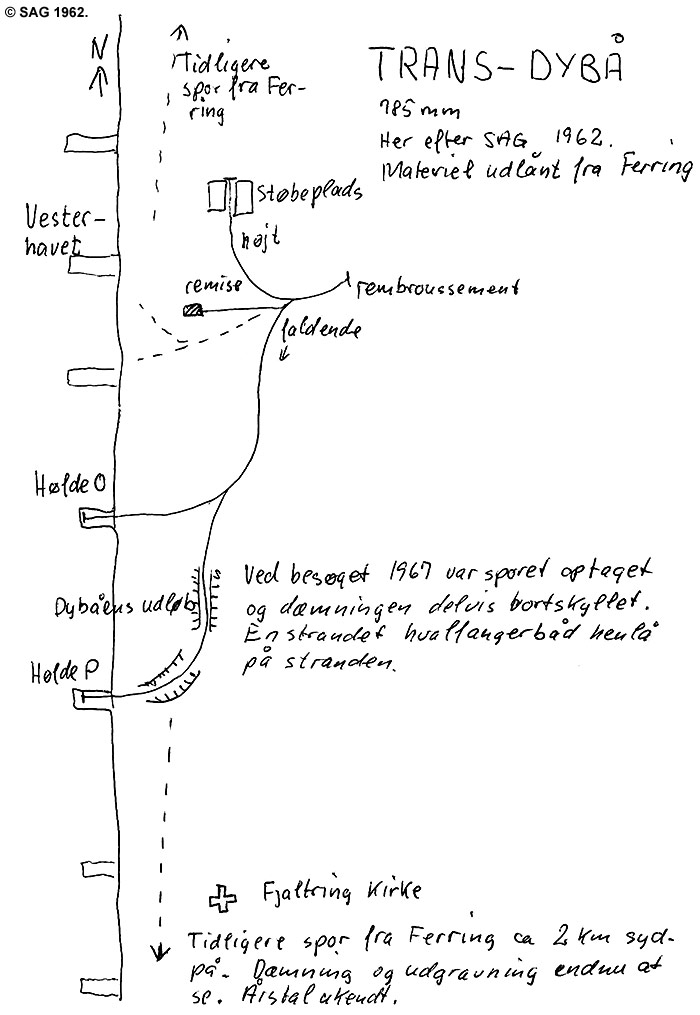 © SAG 1962.
N
Tidligere
spor fra Fer-
ring
TRANS-DYBÅ
785 mm
Her efter SAG 1962.
Materiel udlånt fra Ferring
Støbeplads
Vester-
havet
højt
remise
rembroussement
faldende
Høfde O
Ved besøget 1967 var sporet optaget
og dæmningen delvis bortskyllet.
En strandet hvalfangerbåd henlå
på stranden.
Dybåens udløb
Høfde P
Fjaltring Kirke
Tidligere spor fra Ferring ca 2 km syd-
på. Dæmning og udgravning endnu at
se. Årstal ukendt.